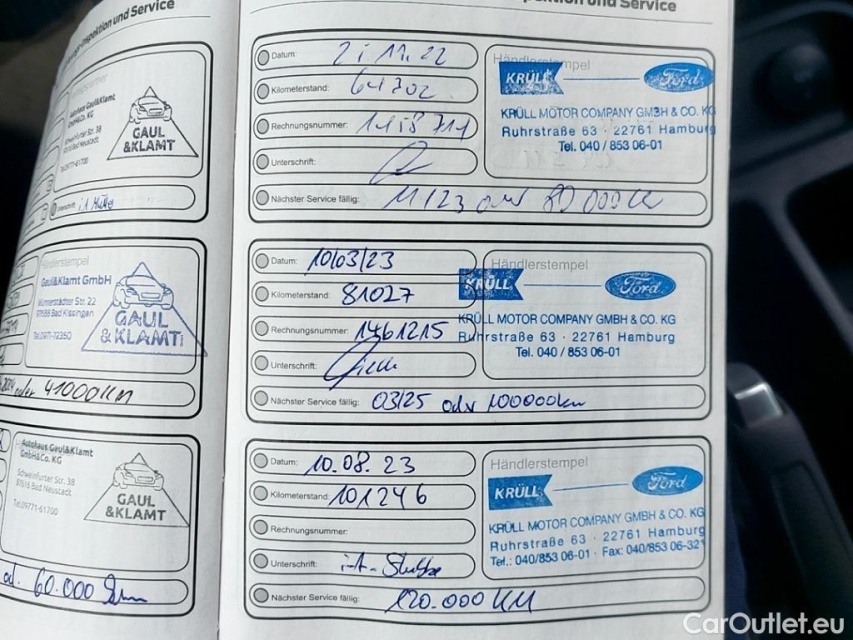 Inspektion und Service
Autohaus Gaul&Klamt
GmbH&Co. KG
Schweinfurter Str. 38
Bad Neustadt
Tel.09771-61700
GAUL
&KLAMT
Unterschrift:
Händlerstempel
Gaul&Klamt GmbH
Münnerstädter Str. 22
97688 Bad Kissingen
GAUL
&KLAMT
oder 41000KM
Autohaus Gaul&Klamt
GmbH&Co. KG
Schweinfurter Str. 38
97616 Bad Neustadt
Tel.09771-61700
GAUL
&KLAMT
od. 60.000
und Service
Datum: 21.11.22
Kilometerstand:
Rechnungsnummer:
Unterschrift:
Nächster Service fällig: 11/23 oder 80 000
Händlerstempel
KRÜLL Ford
KRÜLL MOTOR COMPANY GMBH & CO. KG
Ruhrstraße 63 · 22761 Hamburg
Tel. 040 / 853 06-01
Datum: 10/03/23
Kilometerstand: 81027
Rechnungsnummer: 1461215
Unterschrift:
Nächster Service fällig: 03/25 oder 100000km
Händlerstempel
KRÜLL Ford
KRÜLL MOTOR COMPANY GMBH & CO. KG
Ruhrstraße 63 · 22761 Hamburg
Tel. 040 / 853 06-01
Datum: 10.08.23
Kilometerstand: 101246
Rechnungsnummer:
Unterschrift: i.A.
Nächster Service fällig: 120.000 KM
Händlerstempel
KRÜLL Ford
KRÜLL MOTOR COMPANY GMBH & CO. KG
Ruhrstraße 63 · 22761 Hamburg
Tel.: 040/853 06-01 · Fax: 040/853 06-321
CarOutlet.eu